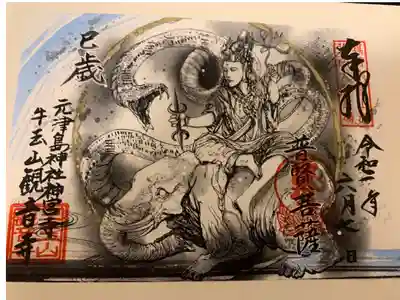 奉拝
令和年六月日
普賢菩薩
巳歳
元津島神社神宮寺
牛玉山観音寺